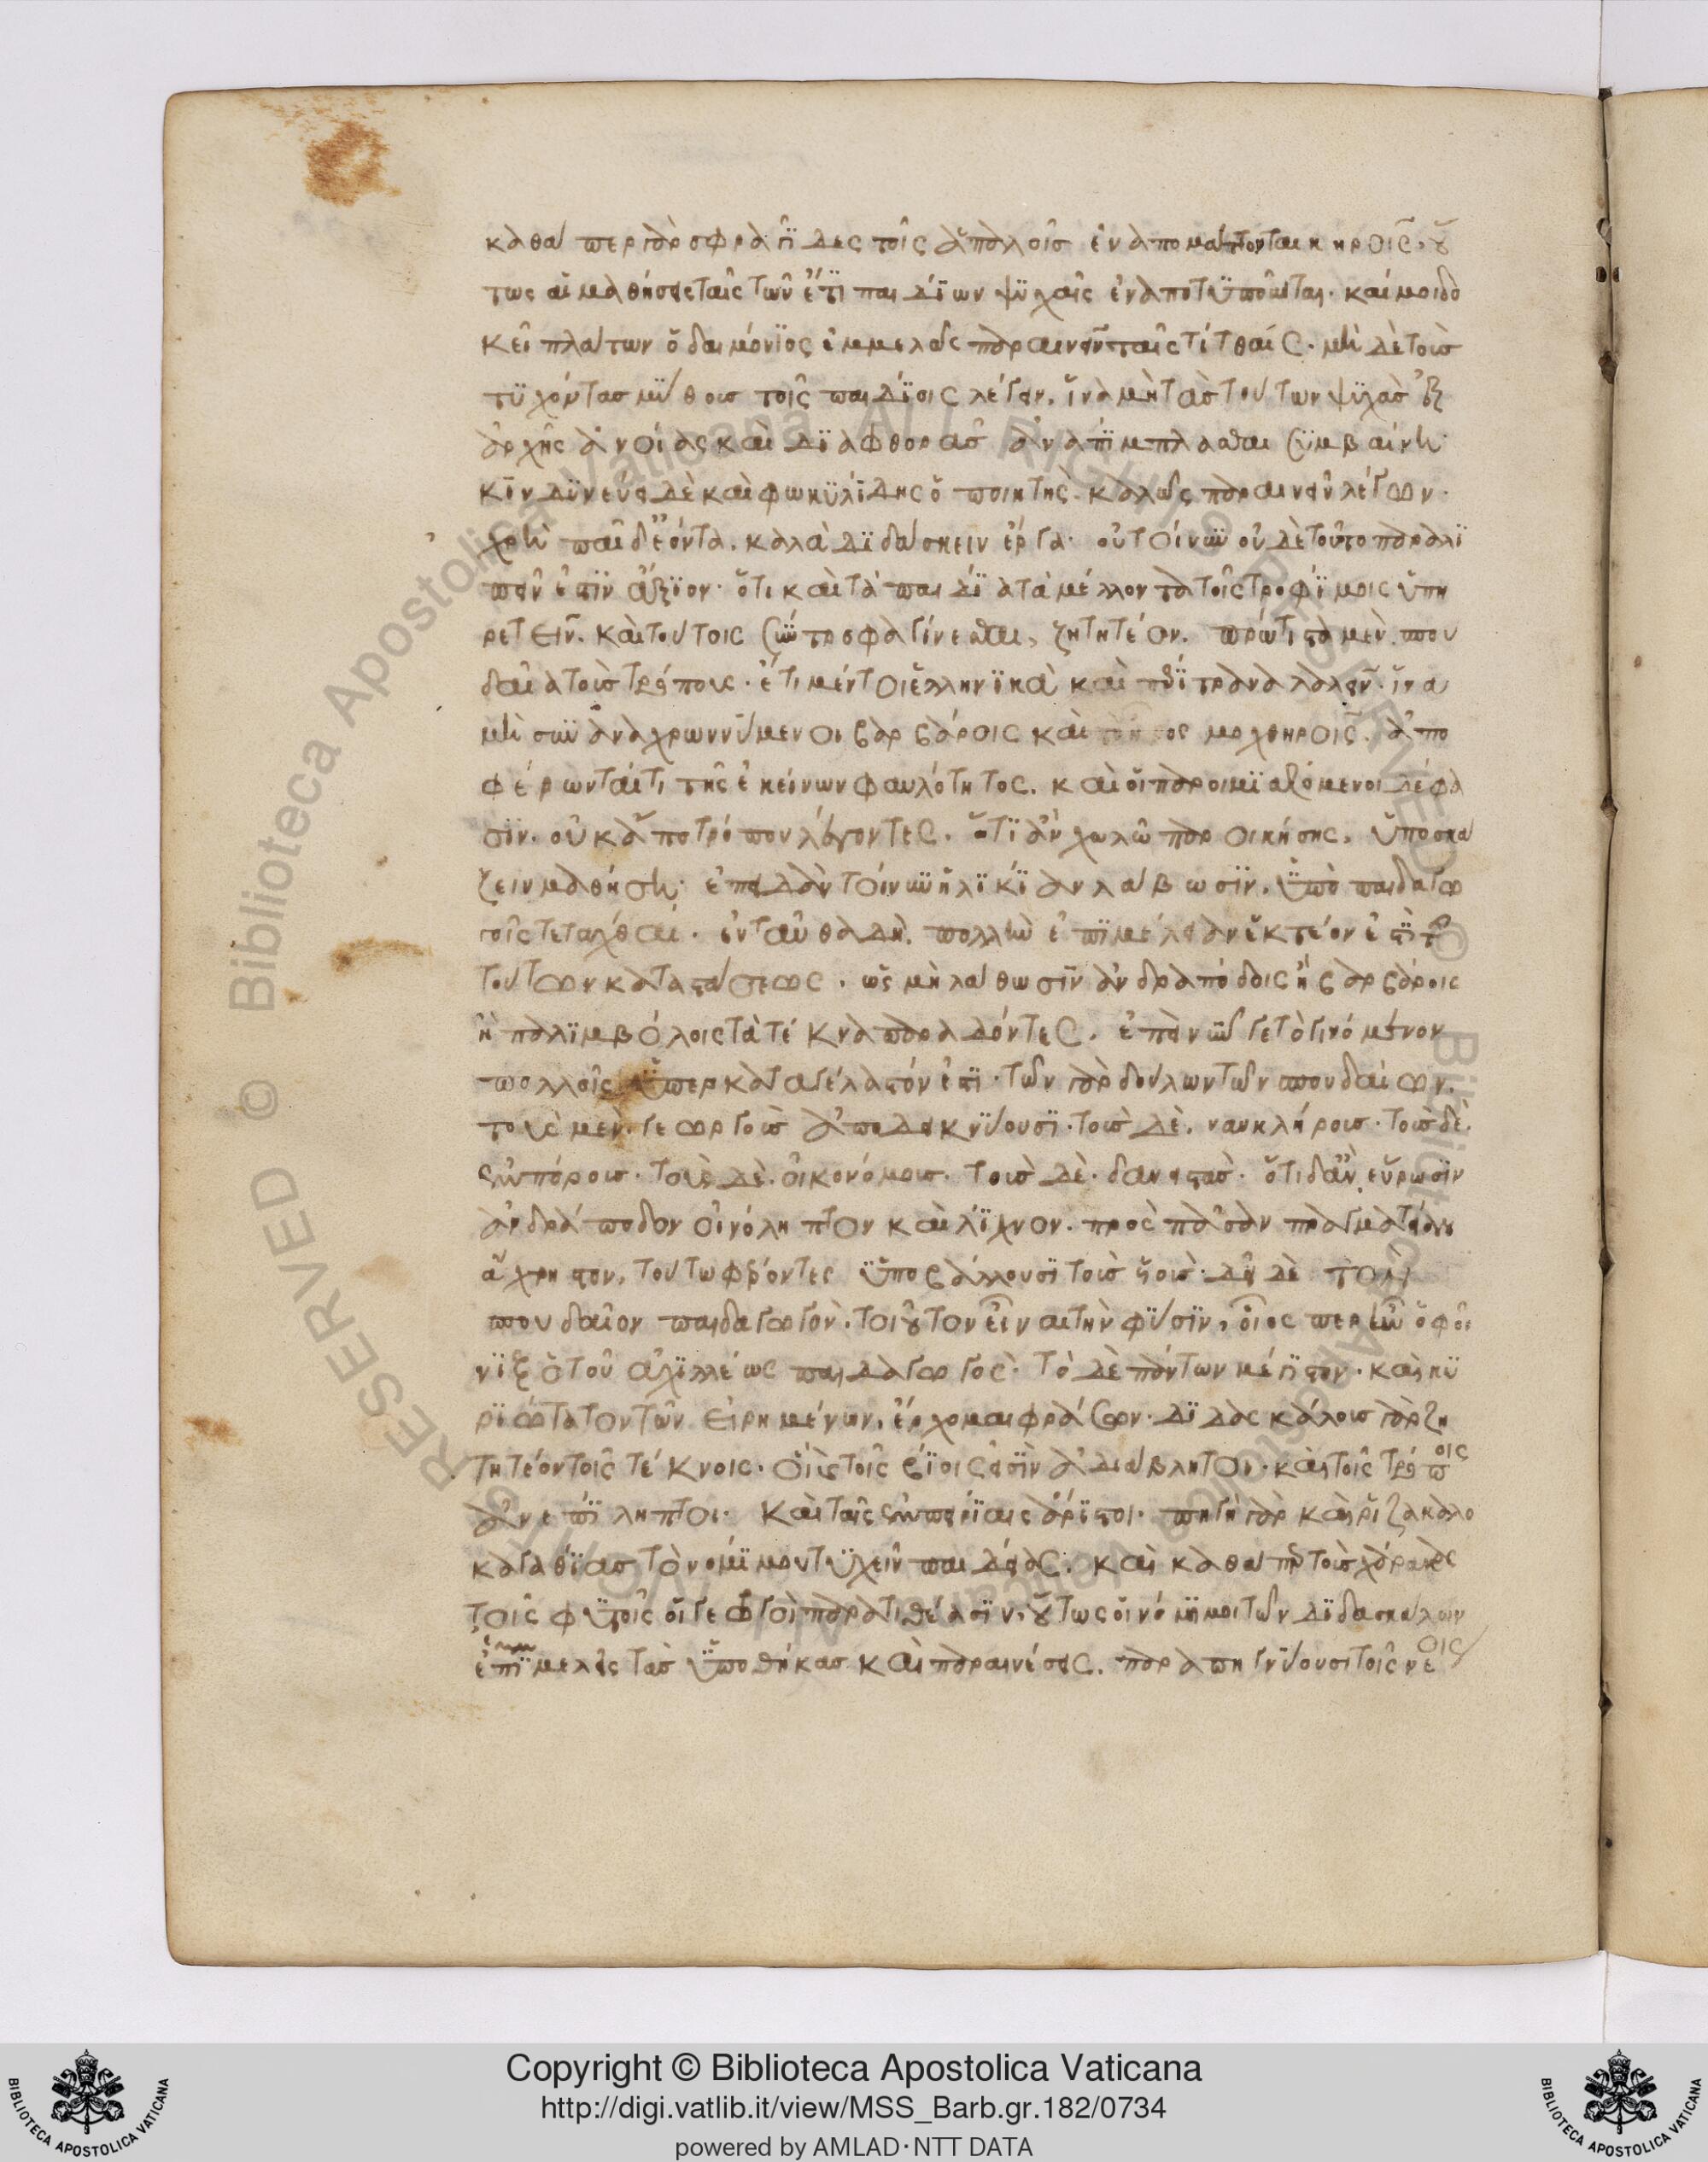 καθάπερ γὰρ σφραγῖδες τοῖς ἁπαλοῖς ἐναπομάττονται κηροῖς, οὕ
τως αἱ μαθήσεις ταῖς τῶν ἔτι παιδίων ψυχαῖς ἐναποτυποῦνται. καί μοι δο
κεῖ πλάτων ὁ δαιμόνιος ἐμμελῶς παραινεῖν ταῖς τίτθαις. μὴ δὲ τοὺς
τυχόντας μύθους τοῖς παιδίοις λέγειν. ἵνα μὴ τὰς τούτων ψυχὰς ἐξ
ἀρχῆς ἀνοίας καὶ διαφθορᾶς ἀναπίμπλασθαι συμβαίνη.
κινδυνεύει δὲ καὶ φωκυλίδης ὁ ποιητὴς καλῶς παραινεῖν λέγων.
χρὴ παῖδ' ἐόντα. καλὰ διδάσκειν ἔργα. οὐ τοίνυν οὐδὲ τοῦτο παραλι
πεῖν ἐστὶν ἄξιον. ὅτι καὶ τὰ παιδία τὰ μέλλοντα τοῖς τροφίμοις ὑπη
ρετεῖν. καὶ τούτοις σύντροφα γίνεσθαι, ζητητέον. πρώτιστα μὲν σπου
δαῖα τοὺς τρόπους. ἔτι μέντοι ἑλληνικὰ καὶ περίτρανα λαλεῖν. ἵνα
μὴ συναναχρωννύμενοι βαρβάροις καὶ τὸ ἦθος μοχθηροῖς. ἀπο
φέρωνταί τι τῆς ἐκείνων φαυλότητος. καὶ οἱ παροιμιαζόμενοι δέ φα
σιν. οὐκ ἀπὸ τρόπου λέγοντες. ὅτι ἂν χωλῶ παροικήσης, ὑποσκά
ζειν μαθήση. ἐπειδὰν τοίνυν ἡλικίαν λάβωσιν. ὑπὸ παιδαγω
γοῖς τετάχθαι. ἐνταῦθα δὴ. πολλὴν ἐπιμέλειαν ἑκτέον ἐστὶ τῆς
τούτων καταστάσεως. ὡς μὴ λάθωσιν ἀνδραπόδοις ἢ βαρβάροις
ἢ παλιμβόλοις τὰ τέκνα παραδόντες. ἐπεὶ νῦν γε τὸ γινόμενον
πολλοῖς ὑπερκαταγέλαστόν ἐστι. τῶν γὰρ δούλων τῶν σπουδαίων.
τοὺς μὲν. γεωργοὺς ἀποδεικνύουσι. τοὺς δὲ. ναυκλήρους. τοὺς δὲ.
ἐμπόρους. τοὺς δὲ. οἰκονόμους. τοὺς δὲ. δανειστάς. ὅτι δ' ἂν εὕρωσιν
ἀνδράποδον οἰνόληπτον καὶ λίχνον. πρὸς πᾶσαν πραγματείαν
ἄχρηστον, τούτω φέροντες ὑποβάλλουσι τοὺς υἱούς. δεῖ δὲ τὸν
σπουδαῖον παιδαγωγὸν. τοιοῦτον εἶναι τὴν φύσιν, οἷος περ ἦν ὁ φοῖ
νιξ ὁ τοῦ ἀχιλλέως παιδαγωγός. τὸ δὲ πάντων μέγιστον. καὶ κυ
ριώτατον τῶν εἰρημένων, ἔρχομαι φράσων. διδασκάλους γὰρ ζη
τητέον τοῖς τέκνοις. οἳ καὶ τοῖς βίοις εἰσὶν ἀδιάβλητοι. καὶ τοῖς τρόποις
ἀνεπίληπτοι. καὶ ταῖς ἐμπειρίαις ἄριστοι. πηγὴ γὰρ καὶ ῥίζα καλο
καγαθίας τὸ νομίμου τυχεῖν παιδείας. καὶ καθάπερ τοὺς χάρακας
τοῖς φυτοῖς οἱ γεωργοὶ παρατιθέασιν, οὕτως οἱ νόμιμοι τῶν διδασκάλων
ἐπιμελεῖς τὰς ὑποθήκας καὶ παραινέσεις. παραπηγνύουσι τοῖς νέοις